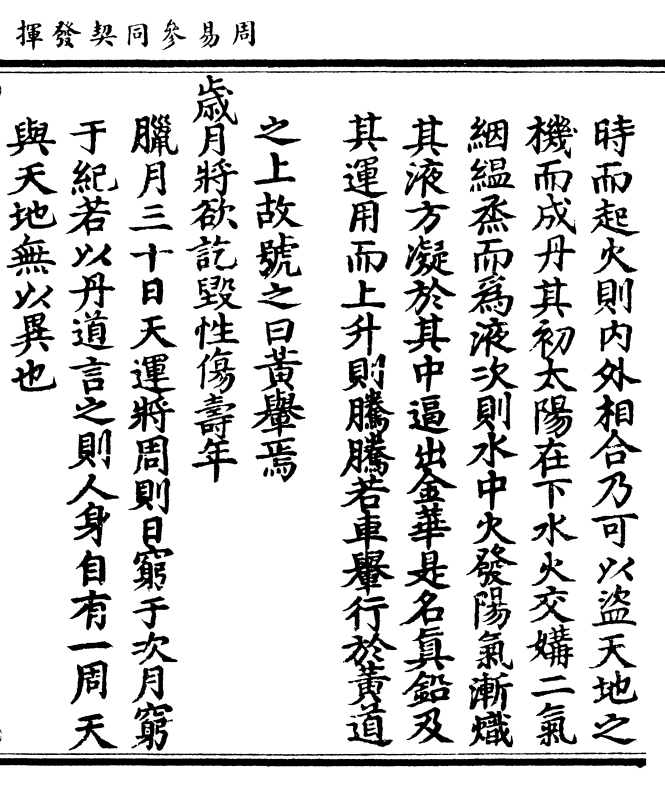 周易參同契發揮
時而起火則內外相合乃可以盜天地之
機而成丹其初太陽在下水火交媾二氣
絪縕烝而爲液次則水中火發陽氣漸熾
其液方凝於其中逼出金華是名眞鉛及
其運用而上升則騰騰若車轝行於黃道
之上故號之曰黃轝焉
歲月將欲訖毀性傷壽年
臘月三十日天運將周則日窮于次月窮
于紀若以丹道言之則人身自有一周天
與天地無以異也